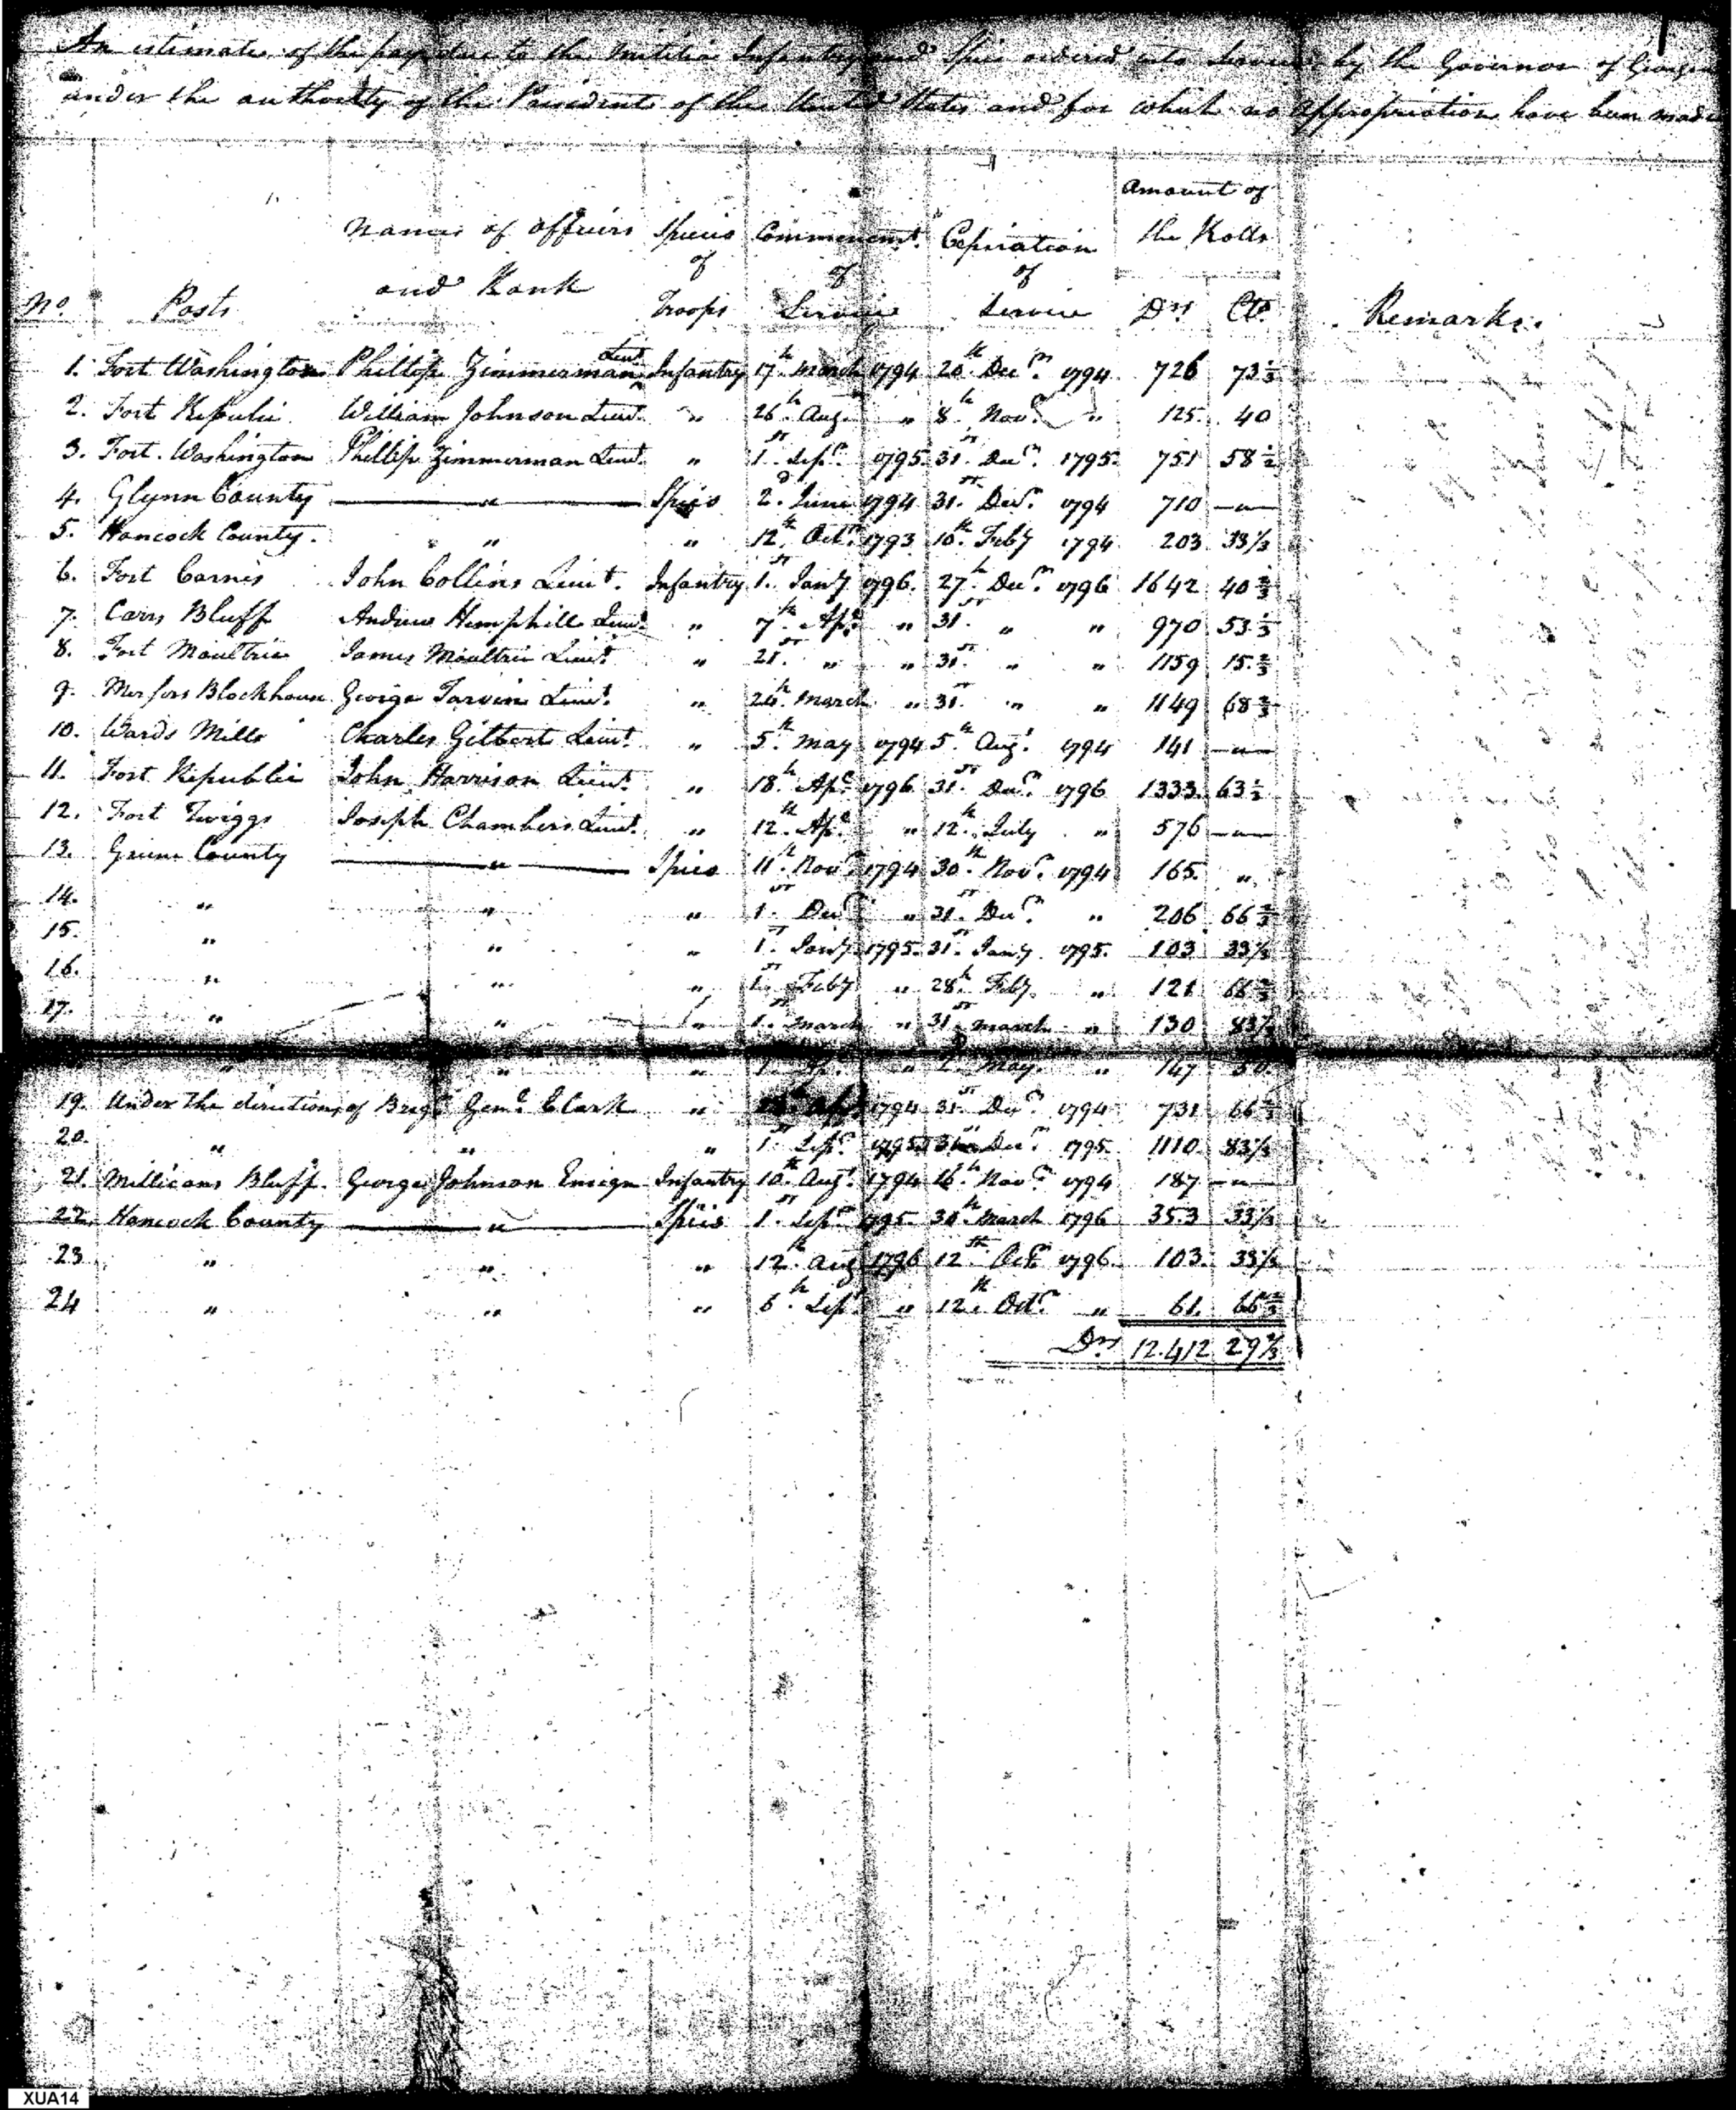 An estimate of the pay due to the Militia Infantry and Spies ordered into Service by the Governor of Georgia
under the authority of the President of the United States and for which no appropriation have been made
Amount of
Names of officers Species Commencmt. Expiration the Rolls
and Rank of of of
No. Posts Troops Service Service Drs Cts. Remarks.
1. Fort Washington Phillip Zimmerman Lieut Infantry 17th March 1794 20th Decr. 1794 726 73⅓
2. Fort Republic William Johnson Lieut. " 26th Aug. " 8th Novr. " 125. 40
3. Fort Washington Phillip Zimmerman Lieut. " 1st Sepr. 1795 31st Decr. 1795. 751 58½
4. Glynn County " Spies 2d June 1794 31st Decr. 1794 710 "
5. Hancock County. " " 12th Octr. 1793 10th Feby 1794 203 33⅓
6. Fort Carnes John Collins Lieut. Infantry 1st Jany 1796. 27th Decr. 1796 1642 40⅔
7. Carrs Bluff Andrew Hemphill Lieut. " 7th Apl. " 31st " " 970 53⅓
8. Fort Moultrie James Moultrie Lieut. " 21st " " 31st " " 1159 15⅔
9. Blockhouse George Tarvin Lieut. " 24th March " 31st " " 1149 68⅔
10. Wards Mills Charles Gilbert Lieut. " 5th May 1794 5th Augt. 1794 141 "
11. Fort Republic John Harrison Lieut. " 18th Apl. 1796 31st Decr. 1796 1333 63½
12. Fort Twiggs Joseph Chambers Lieut. " 12th Apl. " 12th July " 576 "
13. Greene County " Spies 11th Novr. 1794 30th Novr. 1794 165. "
14. " " " 1st Decr. " 31st Decr. " 206 66⅔
15. " " " 1st Jany 1795. 31st Jany 1795. 103 33⅓
16. " " " 1st Feby " 28th Feby. " 121 66⅔
17. " " " 1st March " 31st March " 130 83⅓
" " " 1 " May. " 147 50
19. Under the directions of Brigr. Genl. Clark " 1794 31st Decr. 1794 731 66⅔
20. " " " 1st Sepr. 1795 31st Decr. 1795. 1110 83⅓
21. Millicans Bluff. George Johnson Ensign Infantry 10th Augt. 1794 16th Novr. 1794 187 "
22. Hancock County " Spies 1st Sepr. 1795. 30th March 1796 353 33⅓
23 " " " 12th Aug 1796 12th Octr. 1796. 103. 33⅓
24 " " " 6th Sepr. " 12th Octr. " 61. 66⅔
Drs 12.412 29⅔
XUA14